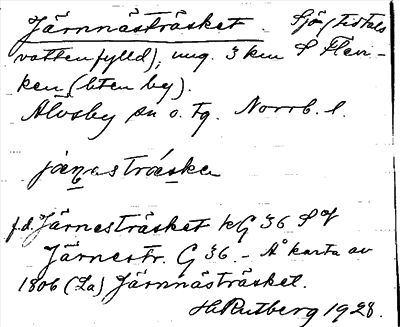 Järnnästräsket. Sjö (tidtals
vattenfylld), ung. 3 km S Flar-
ken (liten by).
Älvsby sn o. tg. Norrb. l.
jänastráska
f.d. Järnesträsket kG 36 Sof
Järnestr. G 36. – Å karta av
1806 (La) Järnnästräsket.
H. Rutberg 1928.